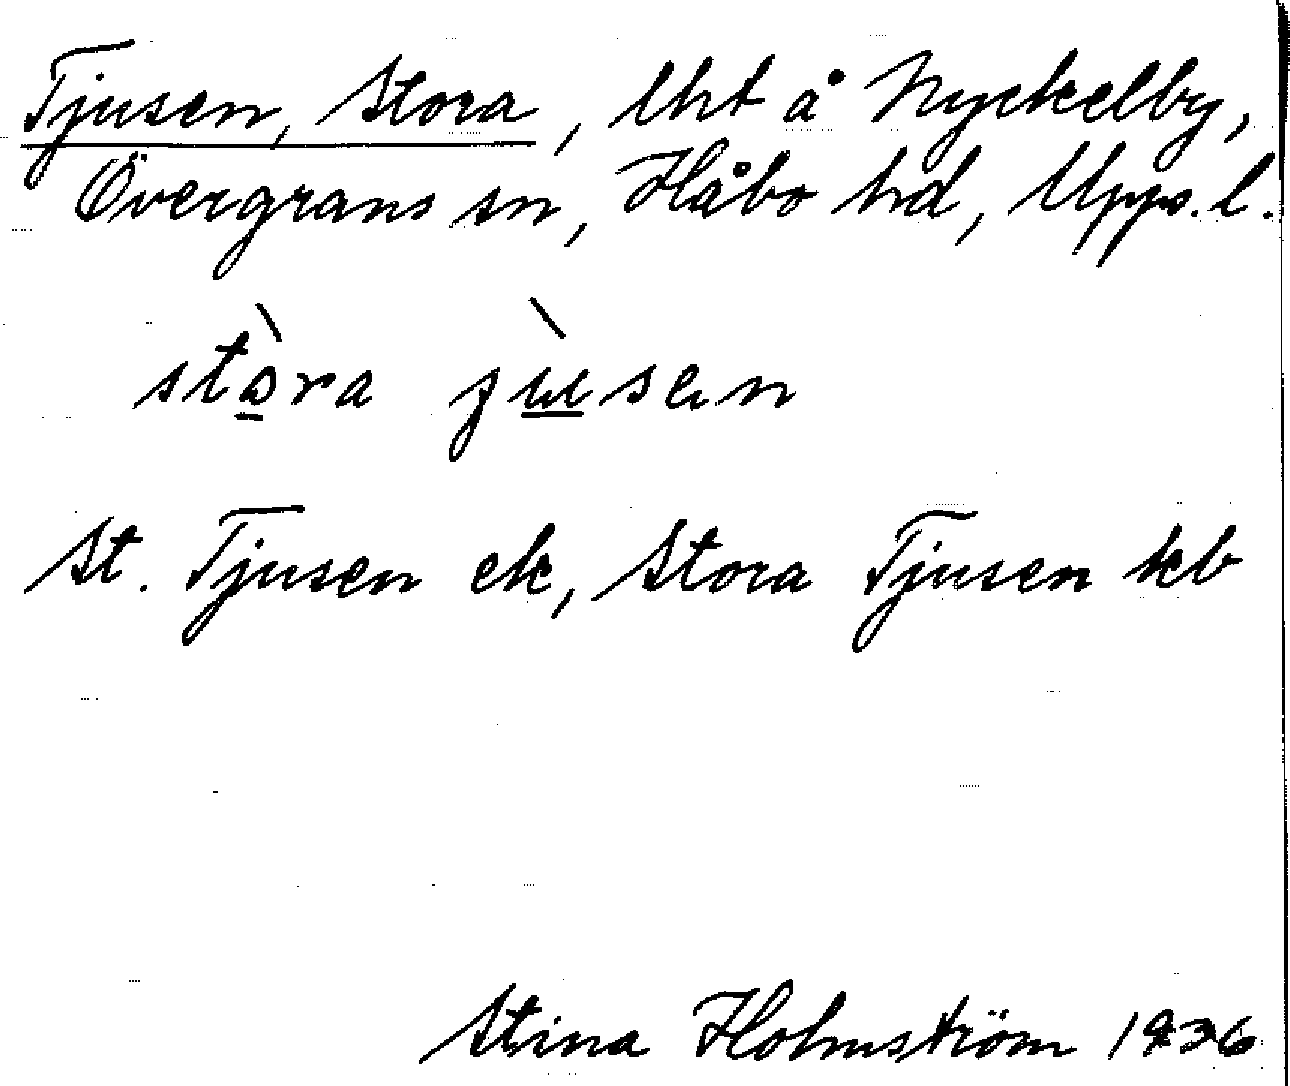 Tjusen, Stora, lht å Nyckelby,
Övergrans sn, Håbo hd, Upps. l.
stòra jùsen
St. Tjusen ek, Stora Tjusen kb
Stina Holmström 1936